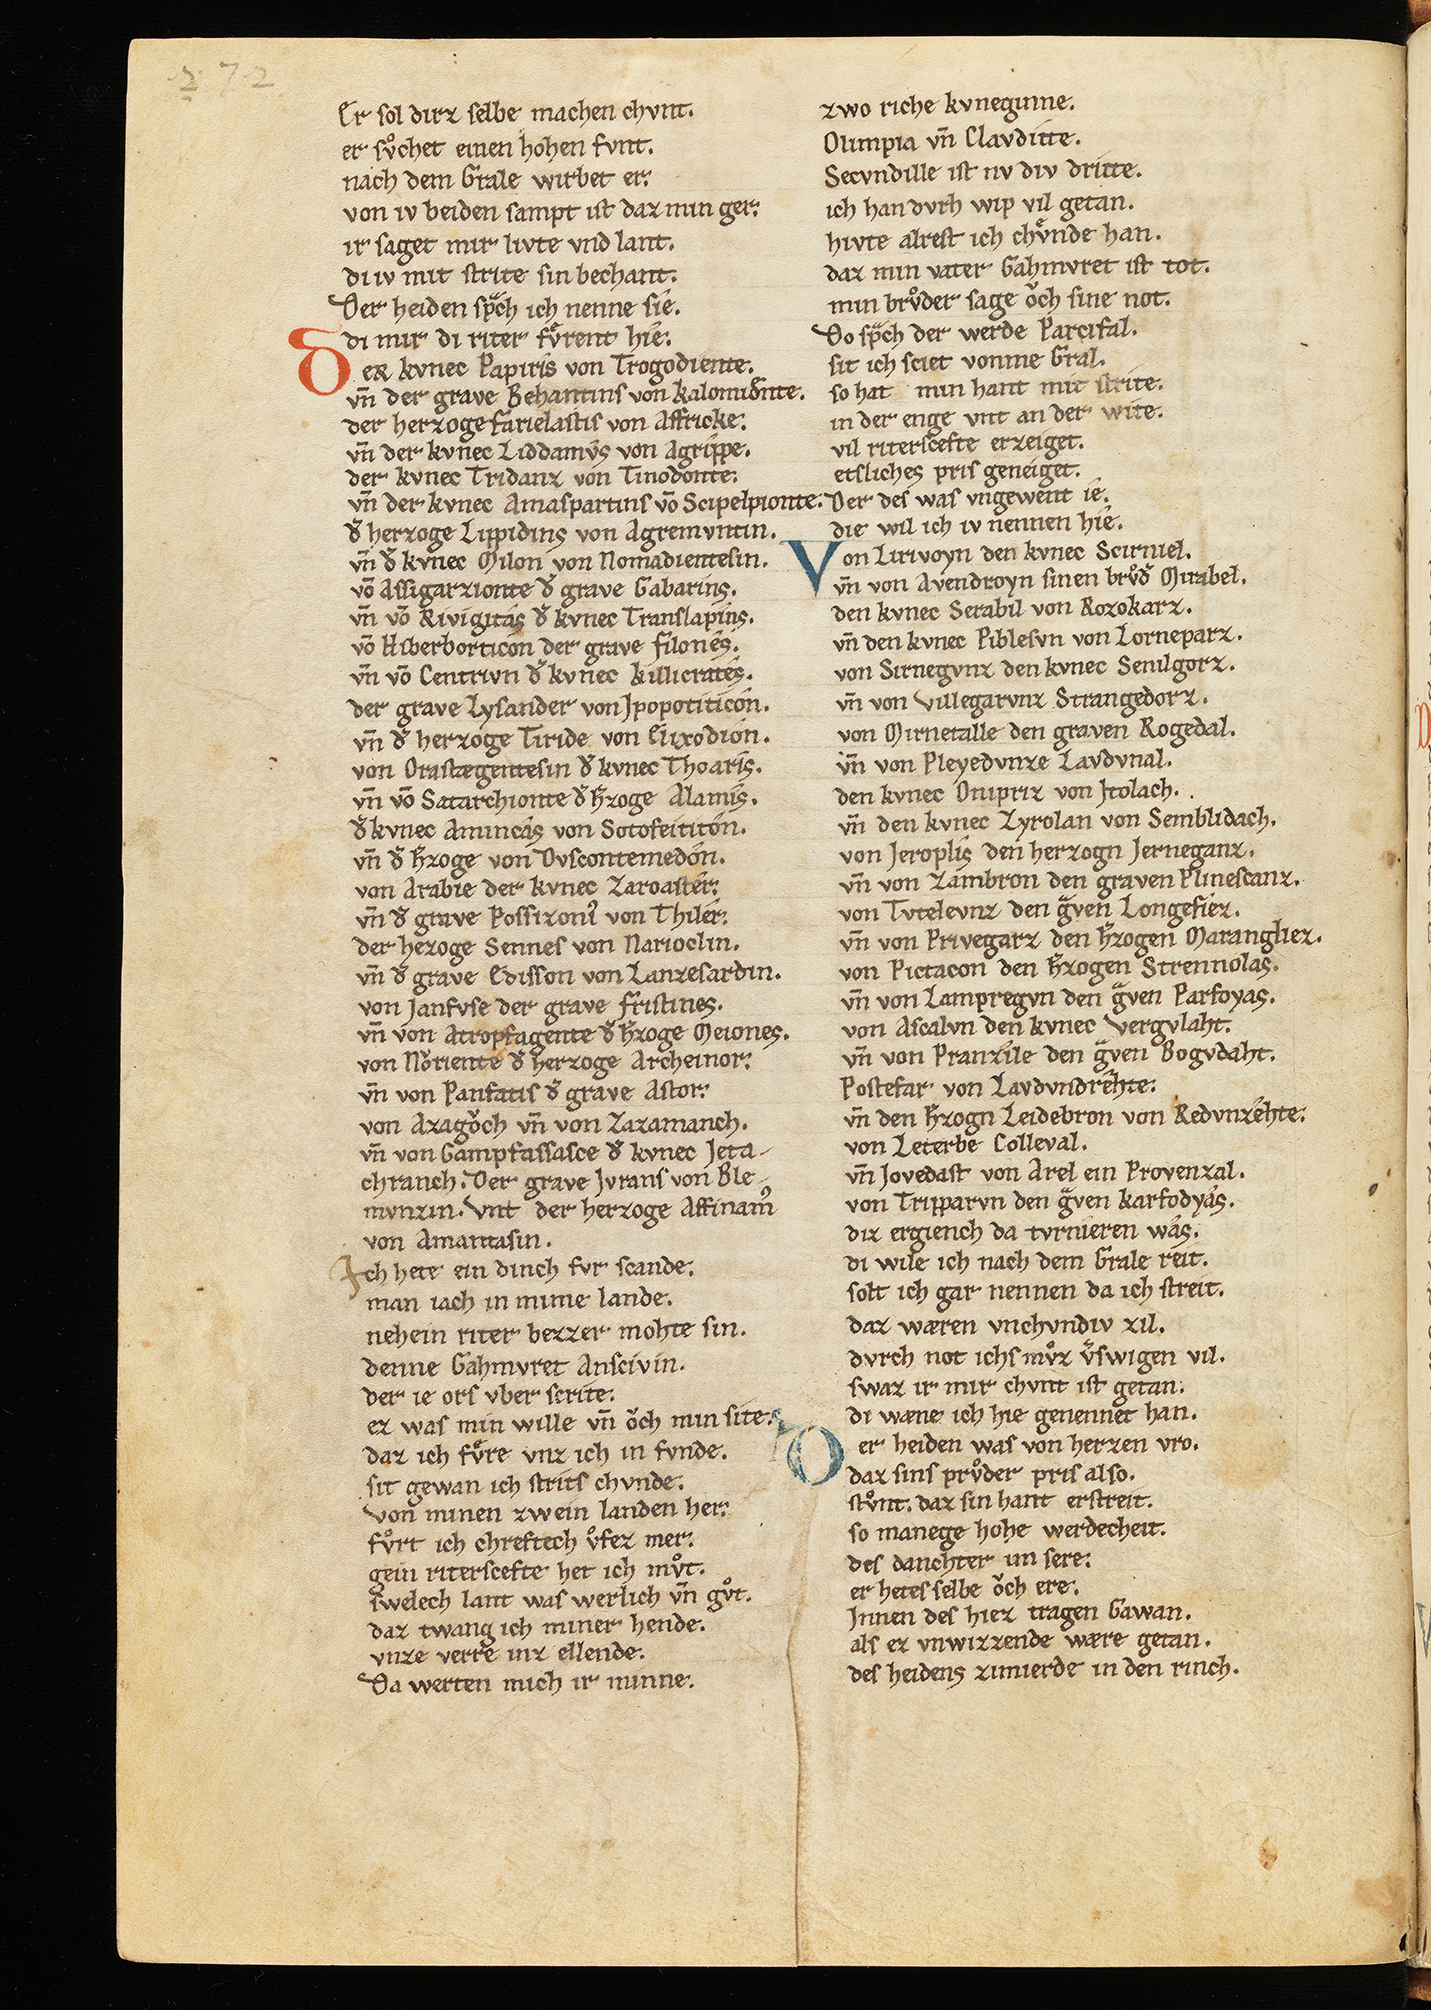 272
Er sol dirz selbe machen chvnt.
er sv̊chet einen hohen fvnt.
nach dem Grale wirbet er.
von iv beiden sampt ist daz min ger.
ir saget mir livte vnd lant.
di iv mit strite sin bechant.
Der heiden sp̃ch ich nenne sie.
di mir di riter fv̊rent hie.
Der kvnec Papiris von Trogodiente.
vñ der grave Behantins von kalomidente.
der herzoge farielastis von Affricke.
vñ der kvnec Liddamvs von Agrippe.
der kvnec Tridanz von Tinodonte.
vñ der kvnec Amaspartins võ Scipelpionte.
d̕ herzoge Lippidins von Agremvntin.
vñ d̕ kvnec Milon von Nomadientesin.
võ Assigarzionte d̕ grave Gabarins.
vñ võ Rivigitas d̕ kvnec Translapins.
võ Hiberborticon der grave filones.
vñ võ Centrivn d̕ kvnec killicrates.
der grave Lysander von Jpopotiticon.
vñ d̕ herzoge Tiride von Elixodion.
von Orastægentesin d̕ kvnec Thoaris.
vñ võ Satarchionte d̕ h̕zoge Alamis.
d̕ kvnec Amincas von Sotofeititon.
vñ d̕ h̕zoge von Dvscontemedon.
von Arabie der kvnec Zaroaster.
vñ d̕ grave Possizoni᷒ von Thiler.
der hezoge Sennes von Narioclin.
vñ d̕ grave Edisson von Lanzesardin.
von Janfvse der grave fristines.
vñ von Atropfagente d̕ h̕zoge Meiones.
von Noriente d̕ herzoge Archeinor.
vñ von Panfatis d̕ grave Astor.
von Azagǒch vñ von Zazamanch.
vñ von Gampfassasce d̕ kvnec Jeta-
chranch. Der grave Jvrans von Ble-
mvnzin. Vnt der herzoge Affinam᷒
von Amantasin.
Ich hete ein dinch fvr scande.
man iach in mime lande.
nehein riter bezzer mohte sin.
denne Gahmvret Anscivin.
der ie ors vber scrite.
ez was min wille vñ ǒch min site.
daz ich fv̊re vnz ich in fvnde.
sit gewan ich strits chvnde.
von minen zwein landen her.
fv̊rt ich chreftech v̊fez mer.
gein riterscefte het ich mv̊t.
swelech lant was werlich vñ gv̊t.
daz twang ich miner hende.
vnze verre inz ellende.
Da werten mich ir minne.
zwo riche kvneginne.
Olimpia vñ Clavditte.
Secvndille ist nv div dritte.
ich han dvrh wip vil getan.
hivte alrest ich chv̊nde han.
daz min vater Gahmvret ist tot.
min brv̊der sage ǒch sine not.
Do sp̃ch der werde Parcifal.
sit ich sciet vomme Gral.
so hat min hant mit strite.
in der enge vnt an der wite.
vil riterscefte erzeiget.
etsliches pris geneiget.
Der des was vngewent ie.
die wil ich iv nennen hie.
Von Lirivoyn den kvnec Scirniel.
vñ von Avendroyn sinen brv̊d̕ Mirabel.
den kvnec Serabil von Rozokarz.
vñ den kvnec Piblesvn von Lorneparz.
von Sirnegvnz den kvnec Senilgorz.
vñ von Villegarvnz Strangedorz.
von Mirnetalle den graven Rogedal.
vñ von Pleyedvnze Lavdvnal.
den kvnec Onipriz von Jtolach.
vñ den kvnec Zyrolan von Semblidach.
von Jeroplis den herzogn Jerneganz.
vñ von Zambron den graven Plinescanz.
von Tvtelevnz den g̃ven Longefiez.
vñ von Privegarz den h̕zogen Marangliez.
von Pictacon den h̕zogen Strennolas.
vñ von Lampregvn den g̃ven Parfoyas.
von Ascalvn den kvnec Vergvlaht.
vñ von Pranzile den g̃ven Bogvdaht.
Postefar von Lavdvndrehte.
vñ den h̕zogn Leidebron von Redvnzehte.
von Leterbe Colleval.
vñ Jovedast von Arel ein Provenzal.
von Tripparvn den g̃ven karfodyas.
diz ergiench da tvrnieren was.
di wile ich nach dem Grale reit.
solt ich gar nennen da ich streit.
daz wæren vnchvndiv zil.
dvrch not ichs mv̊z v̕swigen vil.
swaz ir mir chvnt ist getan.
di wæne ich hie genennet han.
Der heiden was von herzen vro.
daz sins prv̊der pris also.
stv̊nt. daz sin hant erstreit.
so manege hohe werdecheit.
des danchter im sere.
er hetes selbe ǒch ere.
Jnnen des hiez tragen Gawan.
als ez vnwizzende wære getan.
des heidens zimierde in den rinch.